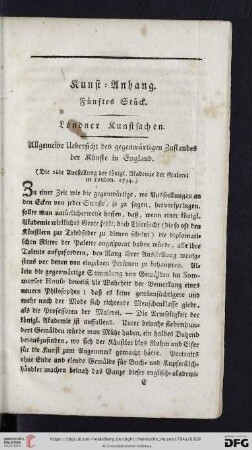 Kunst-Anhang.
Fünftes Stück.
Londner Kunstsachen.
Allgemeine Uebersicht des gegenwärtigen Zustandes
der Künste in England.
(Die 26ste Ausstellung der königl. Akademie der Malerei
in London. 1794.)
In einer Zeit wie die gegenwärtige, wo Ausstellungen an
den Ecken von jeder Straße, so zu sagen, hervorspringen,
sollte man natürlicherweise hoffen, daß, wenn einer königl.
Akademie wirkliches Künstler
den Künstlern zu die
schen Ritter der Palette angespornt haben würde, alle ihre
Talente aufzufordern, den Rang ihrer Ausstellung wenig-
stens vor denen von einzelnen Personen zu behaupten. Al-
lein die gegenwärtige Sammlung von Gemälden im Som-
merset House beweist die Wahrheit der Bemerkung eines
neuern Philosophen: daß es keine gewinnsüchtigere und
mehr nach der Mode sich richtende Menschenklasse giebt,
als die Professoren der Malerei. — Die Armseligkeit der
königl. Akademie ist auffallend. Unter beinahe siebenhun-
dert Gemälden würde man Mühe haben, ein halbes Dutzend
herauszufinden, wo sich der Künstler bloß Ruhm und Eifer
für die Kunst zum Augenmerk gemacht hätte. Portraits
ohne Ende und elende Gemälde für Buch- und Kupferstich-
händler machen beinah das Ganze dieser englisch-akademi-
E